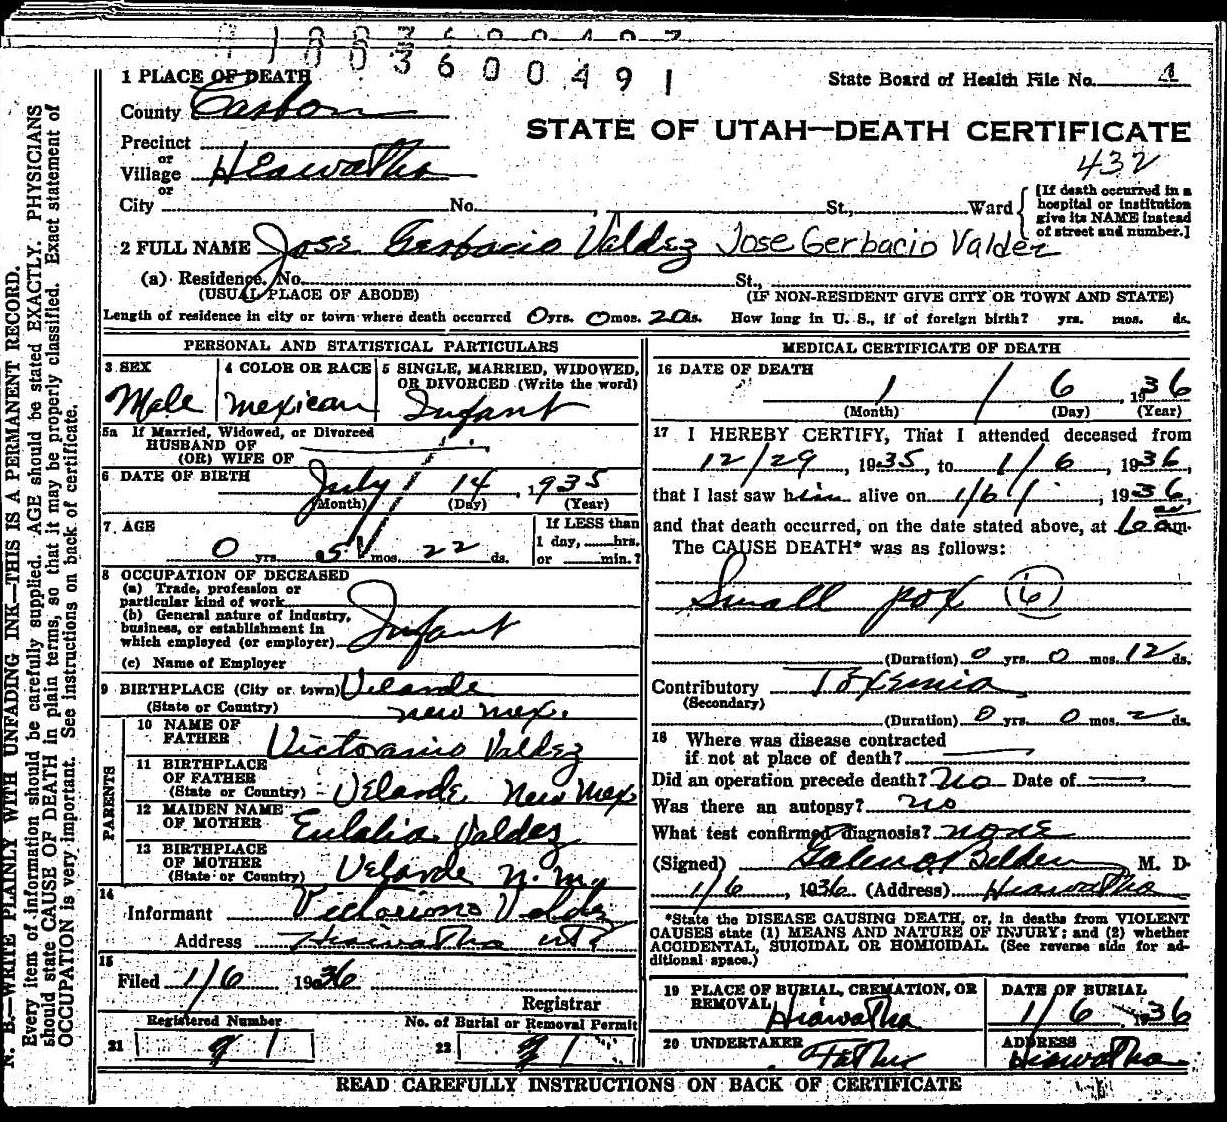 03600491
1 PLACE OF DEATH
State Board of Health File No. 4
County Carbon
STATE OF UTAH—DEATH CERTIFICATE
Precinct
or
432
Village Hiawatha
or
City No. St., Ward
[If death occurred in a
hospital or institution
give its NAME instead
of street and number.]
2 FULL NAME Jose Gerbacio Valdez Jose Gerbacio Valdez
(a) Residence. No. St.,
(USUAL PLACE OF ABODE) (IF NON-RESIDENT GIVE CITY OR TOWN AND STATE)
Length of residence in city or town where death occurred 0 yrs. 0 mos. 20 ds. How long in U. S., if of foreign birth? yrs. mos. ds.
PERSONAL AND STATISTICAL PARTICULARS
3 SEX
Male
4 COLOR OR RACE
Mexican
5 SINGLE, MARRIED, WIDOWED,
OR DIVORCED (Write the word)
Infant
5a If Married, Widowed, or Divorced
HUSBAND OF
(OR) WIFE OF
6 DATE OF BIRTH July 14, 1935
(Month) (Day) (Year)
7. AGE
0 yrs. 5 mos. 22 ds.
If LESS than
1 day, hrs.
or min.?
8 OCCUPATION OF DECEASED
(a) Trade, profession or
particular kind of work
(b) General nature of industry,
business, or establishment in
which employed (or employer) Infant
(c) Name of Employer
9 BIRTHPLACE (City or town) Velarde
(State or Country) New Mex.
PARENTS
10 NAME OF
FATHER Victoriano Valdez
11 BIRTHPLACE
OF FATHER
(State or Country) Velarde New Mex
12 MAIDEN NAME
OF MOTHER Eulalia Valdez
13 BIRTHPLACE
OF MOTHER
(State or Country) Velarde N. M.
14
Informant Victoriano Valdez
Address Hiawatha
15
Filed 1/6 1936
Registrar
Registered Number
21
No. of Burial or Removal Permit
22
MEDICAL CERTIFICATE OF DEATH
16 DATE OF DEATH
1 / 6, 1936
(Month) (Day) (Year)
17 I HEREBY CERTIFY, That I attended deceased from
12/29, 1935, to 1/6, 1936,
that I last saw him alive on 1/6, 1936,
and that death occurred, on the date stated above, at m.
The CAUSE DEATH* was as follows:
Small pox (6)
(Duration) 0 yrs. 0 mos. 12 ds.
Contributory Toxemia
(Secondary)
(Duration) 0 yrs. 0 mos. 2 ds.
18 Where was disease contracted
if not at place of death?
Did an operation precede death? no Date of
Was there an autopsy? no
What test confirmed diagnosis? none
(Signed) Galen O Belden M. D-
1/6, 1936 (Address) Hiawatha
*State the DISEASE CAUSING DEATH, or, in deaths from VIOLENT
CAUSES state (1) MEANS AND NATURE OF INJURY; and (2) whether
ACCIDENTAL, SUICIDAL OR HOMICIDAL. (See reverse side for ad-
ditional space.)
19 PLACE OF BURIAL, CREMATION, OR
REMOVAL Hiawatha
DATE OF BURIAL
1/6 1936
20 UNDERTAKER
Father
ADDRESS
Hiawatha
READ CAREFULLY INSTRUCTIONS ON BACK OF CERTIFICATE
N. B.—WRITE PLAINLY WITH UNFADING INK—THIS IS A PERMANENT RECORD.
Every item of information should be carefully supplied. AGE should be stated EXACTLY. PHYSICIANS
should state CAUSE OF DEATH in plain terms, so that it may be properly classified. Exact statement of
OCCUPATION is very important. See instructions on back of certificate.